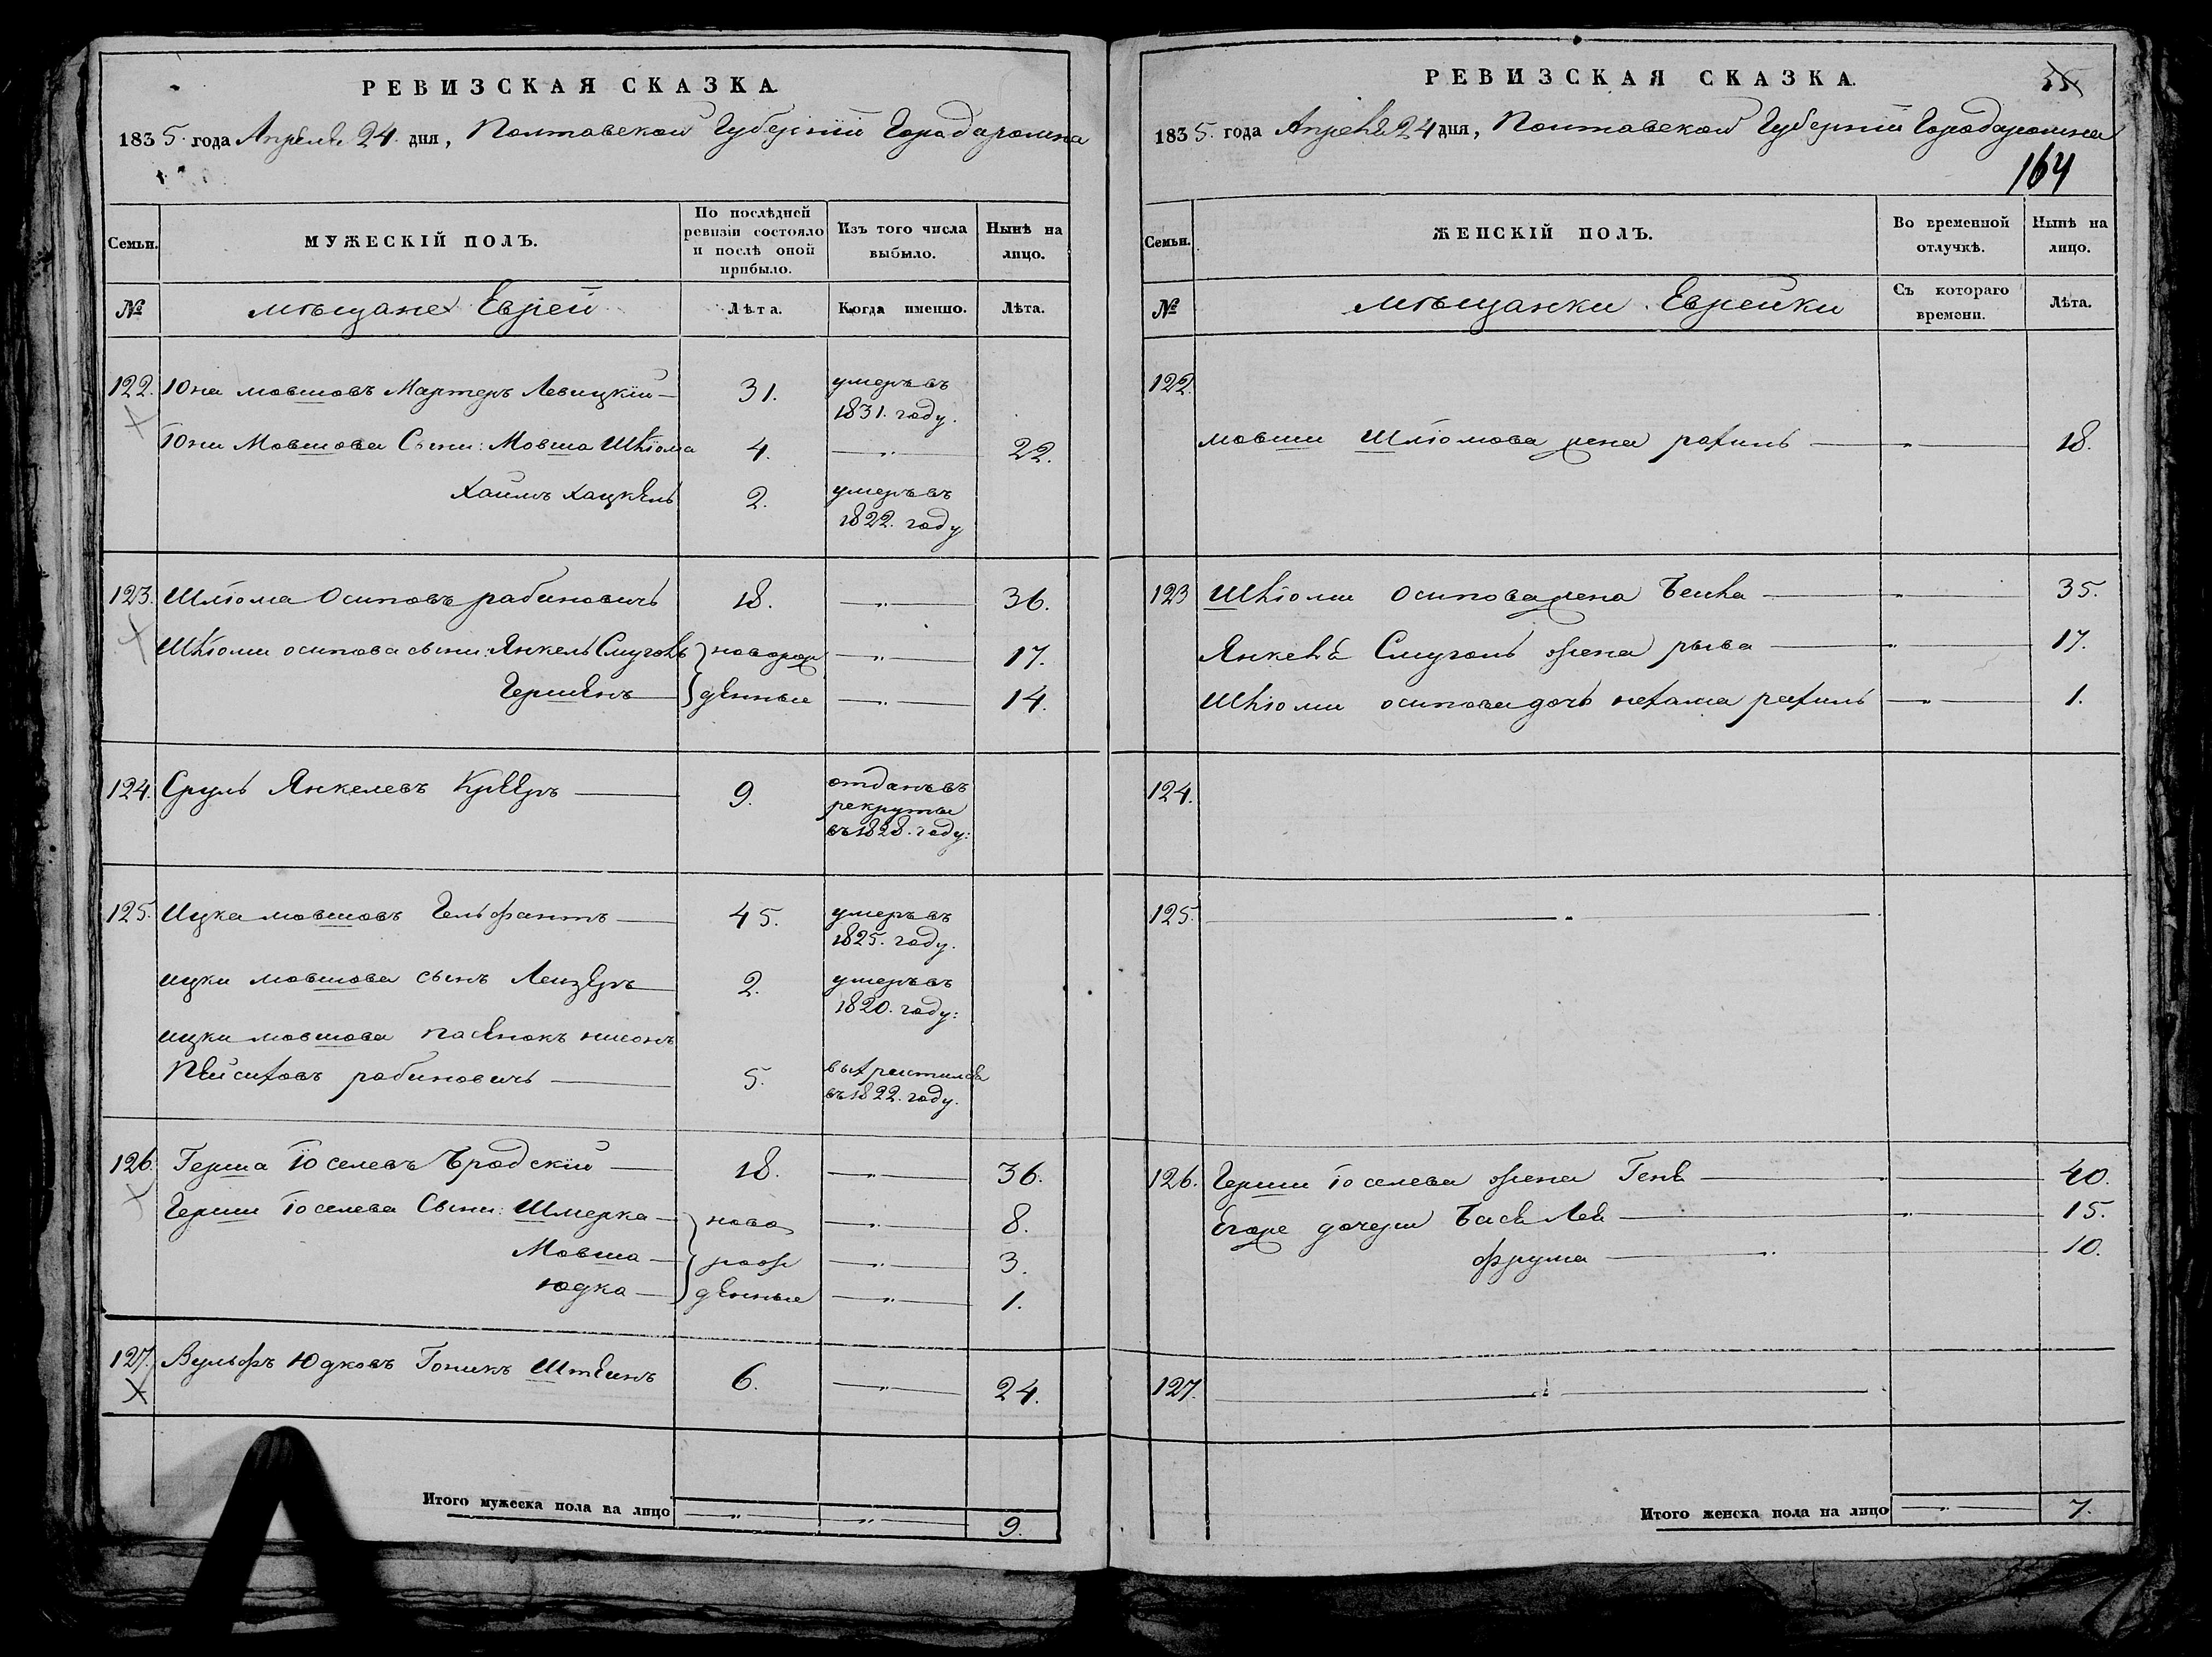 РЕВИЗСКАЯ СКАЗКА.
1835. года Апреля 24. дня, Полтавской Губернии Города
Семьи.
МУЖЕСКІЙ ПОЛЪ.
По послѣдней ревизіи состояло и послѣ оной прибыло.
Изъ того числа выбыло.
Нынѣ на лицо.
№
мѣщане Евреи
Лѣта.
Когда именно.
Лѣта.
122. Юна мовшовъ Мартеръ Левицкій — 31. умеръ въ 1831. году.
Юни Мовшова Сыни: Мовша Шліома 4. — " — 22.
Хаимъ Хацкель 2. умеръ въ 1822. году
123. Шліома Осиповъ рабиновичь 18. — " — 36.
Шліоми осипова сыни: Янкель Смуголь новорож — " — 17.
Гершенъ — денные — " — 14.
124. Сруль Янкелевъ — 9. отданъ въ рекруты въ 1828. году:
125. Ицка мовшовъ Гельфантъ — 45. умеръ въ 1825. году.
ицки мовшова сынъ Лейзеръ — 2. умеръ въ 1820. году:
ицки мовшова пасенокъ нисонъ
Пейсаховъ рабиновичь — 5. выхрестился въ 1822. году.
126. Герша Іоселевъ Бродскій — 18. — " — 36.
Герши Іоселева Сыни: Шмерка — ново — " — 8.
Мовша — рож — " — 3.
Юдка — денные — " — 1.
127. Вульфъ Юдковъ Гоникъ Штеинъ 6. — " — 24.
Итого мужеска пола на лицо — " — — " — 9.
РЕВИЗСКАЯ СКАЗКА.
35
1835. года Апреля 24 дня, Полтавской Губернии Города
164
Семьи.
ЖЕНСКІЙ ПОЛЪ.
Во временной отлучкѣ.
Нынѣ на лицо.
№
мѣщанки Еврейки
Съ котораго времени.
Лѣта.
122.
мовши Шліомова жена рахиль — " — 18.
123 Шліоми Осипова жена Беила — " — 35.
Янкеля Смуголь жена рыва — " — 17.
Шліоми осипова дочь нехама рахиль — " — 1.
124.
125. — " — .
126. Герши Іоселева жена Геня — " — 40.
Егоже дочери Бася Лея — " — 15.
фрума — " — 10.
127. — " — .
Итого женска пола на лицо — " — 7.